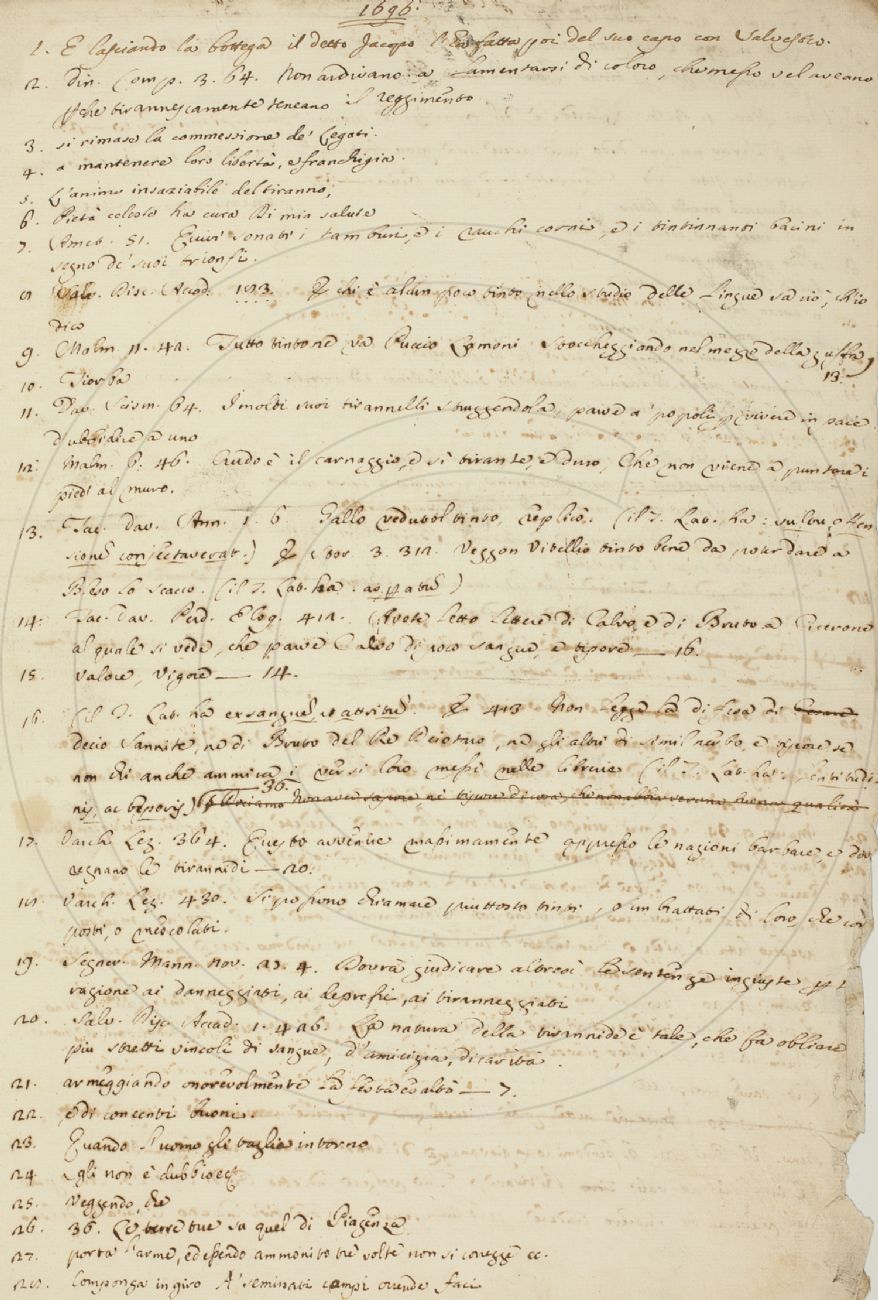 1696.
1. E lasciando la bottega il detto Jacopo l'ha fatta poi del suo capo con Salvestro.
2. Din. Comp. 3. 64. Non ardivano a lamentarsi di coloro, che messo ve l'aveano
perchè tirannescamente teneano il reggimento
3. si rimase la commessione de' Legati.
4. a mantenere loro libertà, e franchigia.
5. L'animo insaziabile del tiranno;
6. Pietà celeste ha cura di mia salute
7. Amet. 51. Quivi sonati i tamburi, e i rauchi corni, e i tintinnanti bacini in
segno de' suoi trionfi.
8 Salv. Disc. Accad. 1. E chi è alcun poco tinto nello studio delle Lingue sa ciò, ch'io
dico
9. Malm. 11. 42. Tutto tinto ne va Puccio Lamoni Stoccheggiando nel mezzo della zuffa
10. Tiorba 13.
11. Dav. Scism. 64. I molti suoi tirannelli struggendola, parve a' popoli per vivere in pace
d'ubbidire a uno
12. Malm. 6. 46. Crudo è il carnaggio, e sì tirante, e duro, Che non viene a puntare i
piedi al muro.
13. Tac. Dav. Ann. 1. 6 Gallo vedutol tinto, replicò. (il T. Lat. ha: vultu offen
sionem conjectaverat.) E Stor. 3. 312. Veggon Vitellio tinto bene da poter dare a
Bleso lo scacco. (il T. Lat. ha:
14. Tac. Dav. Perd. Eloq. 412. Avete letto Lettere di Calvo, e di Bruto a Cicerone
al quale si vede, che parve Calvo di poco sangue, e tiepore — 16.
15. valore, vigore — 14.
16. (il T. Lat. ha exsanguem, et attritum. E 413 Non legge la difesa di
Decio Sannite, nè di Bruto del Re Dejotaro, nè gli altri di simil nerbo, e tiepore se
non chi anche ammira i versi loro messi nelle librerie (il T. Lat. ha: lentitudi
nis, ac teporis) 36.
17. Varch. Lez. 364. Questo avviene massimamente appresso le nazioni barbare, e dove
regnano le tirannidi — 20.
18. Varch. Lez. 430. Si possono chiamare piuttosto tinti, o imbrattati di loro, che com
posti, o mescolati.
19. Segner. Mann. Nov. 4. Dovrà giudicare altresì le sentenze ingiuste per
ragione ai danneggiati, ai depressi, ai tiranneggiati
20. Salv. Disc. Accad. 1. 426. La natura della tirannide è tale, che fa obliare
più stretti vincoli di sangue, d'amicizia, di carità.
21. armeggiando onorevolmente la festa esaltò — 7.
22. e di concenti buoni.
23. Quando l'uomo gli taglia intorno
24 Egli non è dubbio ec.
25. Veggendo, che
26. 36. Le terre tue su quel di Piagenza
27. porta l'arme, ed essendo ammonito tre volte non si corregge ec.
28. Componga in giro A' seminati campi orrende faci